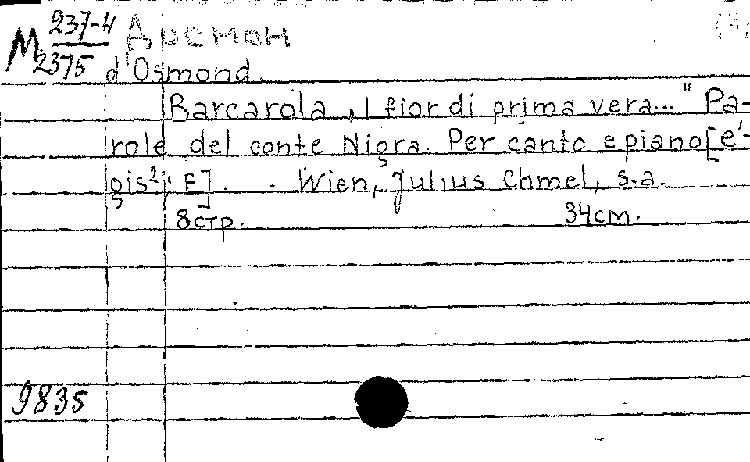 М 237-4 Дремон
2375 d'Osmond.
Barcarola „I fior di prima vera..." Pa-
role del conte Nigra. Per canto e piano [e'-
gis²; E]. . Wien, Julius Chmel, s.a.
8 стр. 34 см.
9835